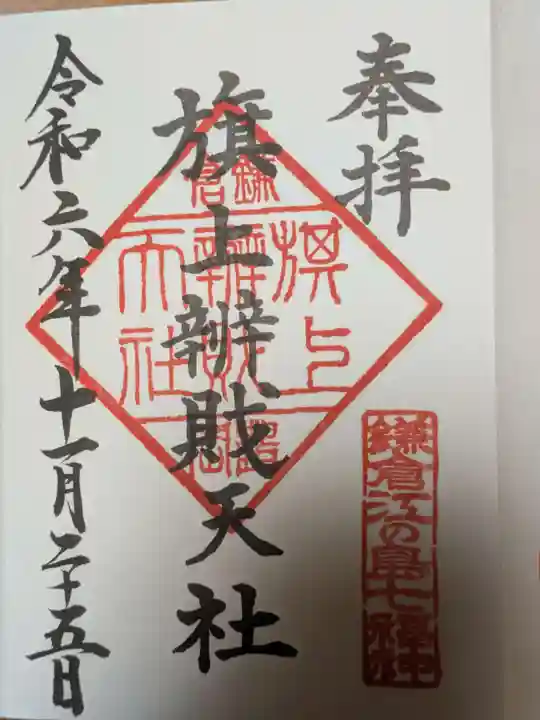 奉拝
旗上辨財天社
鎌倉
旗上
辨財
天社
令和六年十一月二十五日
鎌倉江の島七福神